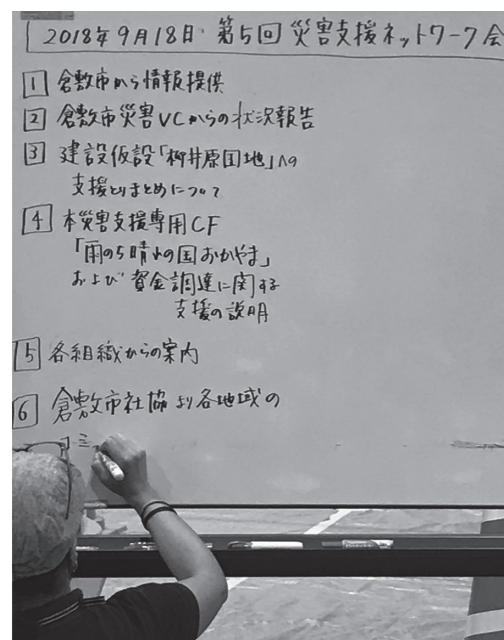 2018年9月18日 第5回 災害支援ネットワーク会
1 倉敷市から情報提供
2 倉敷市災害VCからの状況報告
3 建設仮設「柳井原団地」への
支援とりまとめについて
4 本災害支援専用CF
「雨のち晴れの国おかやま」
および資金調達に関する
支援の説明
5 各組織からの案内
6 倉敷市社協より各地域の
ミ